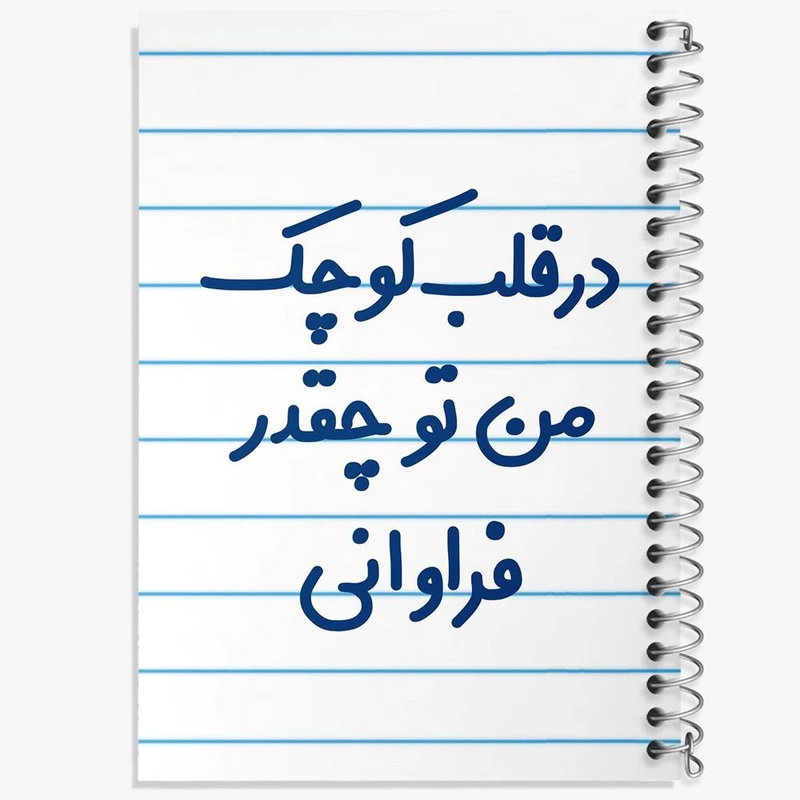 در قلب کوچک
من تو چقدر
فراوانی